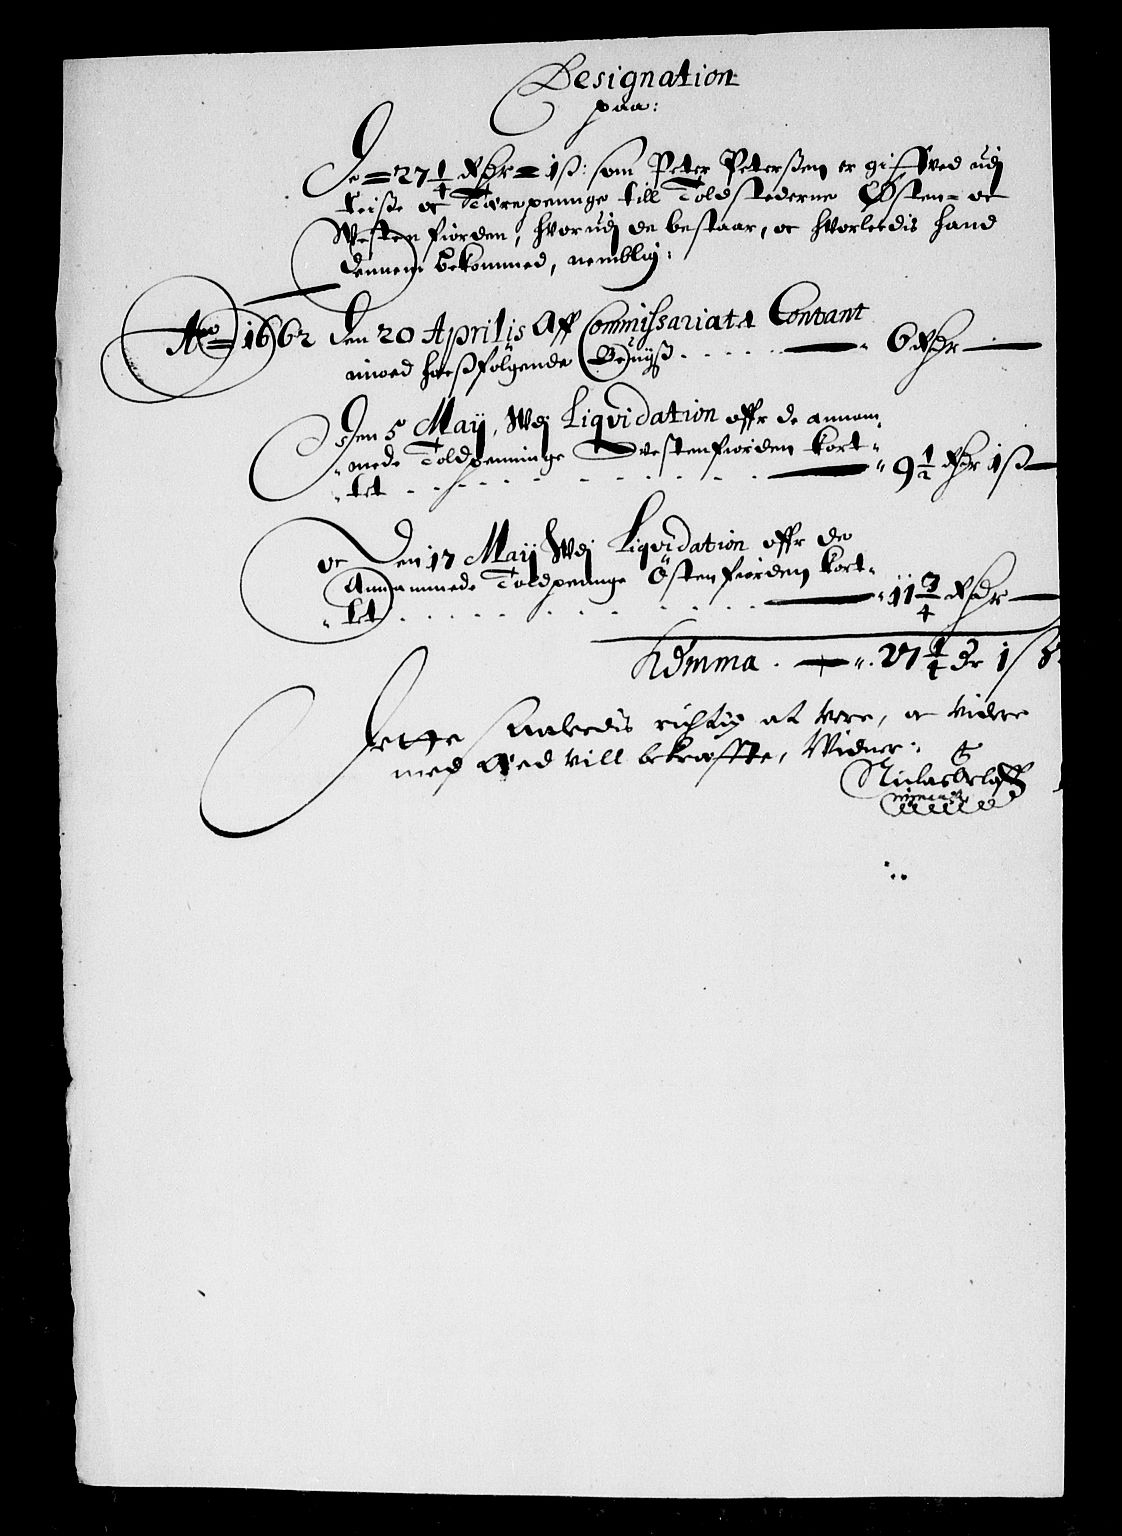 Designation
paa:
De = 27 1/4 Rdr = 1 ß: som Peter Peterßen er giffved udj
Reiße oc Tærepennge till Toldstederne Østen- oc
Westenfiorden, hvorudj de bestaar, oc hvorledis hand
dennem bekommed, nemblig:
Ao 1662 den 20 Aprilis Aff Commissariatet Contant
imod hoesfølgende Beviiß . . . . . . 6 Rdr
Den 5 Maij, Wdj Liqvidation offr de annam-
mede Toldpenninge Westenfiorden kort-
tet . . . . . . . . . . 9 1/2 Rdr 1 ß
oc Den 17 Maij Wdj Liqvidation offr de
Annammede Toldpennge Østenfiorden kort-
tet . . . . . . . . . . 11 3/4 Rdr
Summa . 27 1/4 dr 1 ß
Dette saaledis richtig at vere, oc videre
med Eed vill bekræffte, Widner:
Niclas Orloff